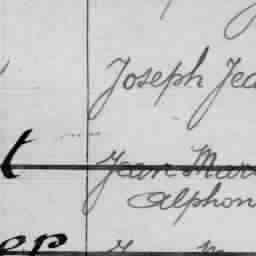 Joseph Jea
t Jean Mar
Alphon
er